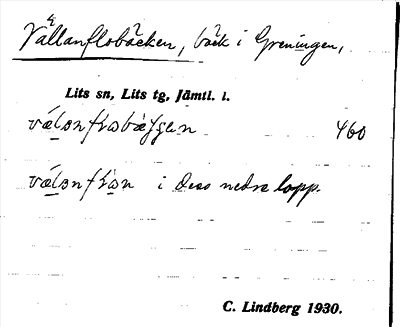 Vällanflobäcken, bäck i Greningen,
Lits sn, Lits tg, Jämtl. l.
460
i dess nedre lopp.
C. Lindberg 1930.